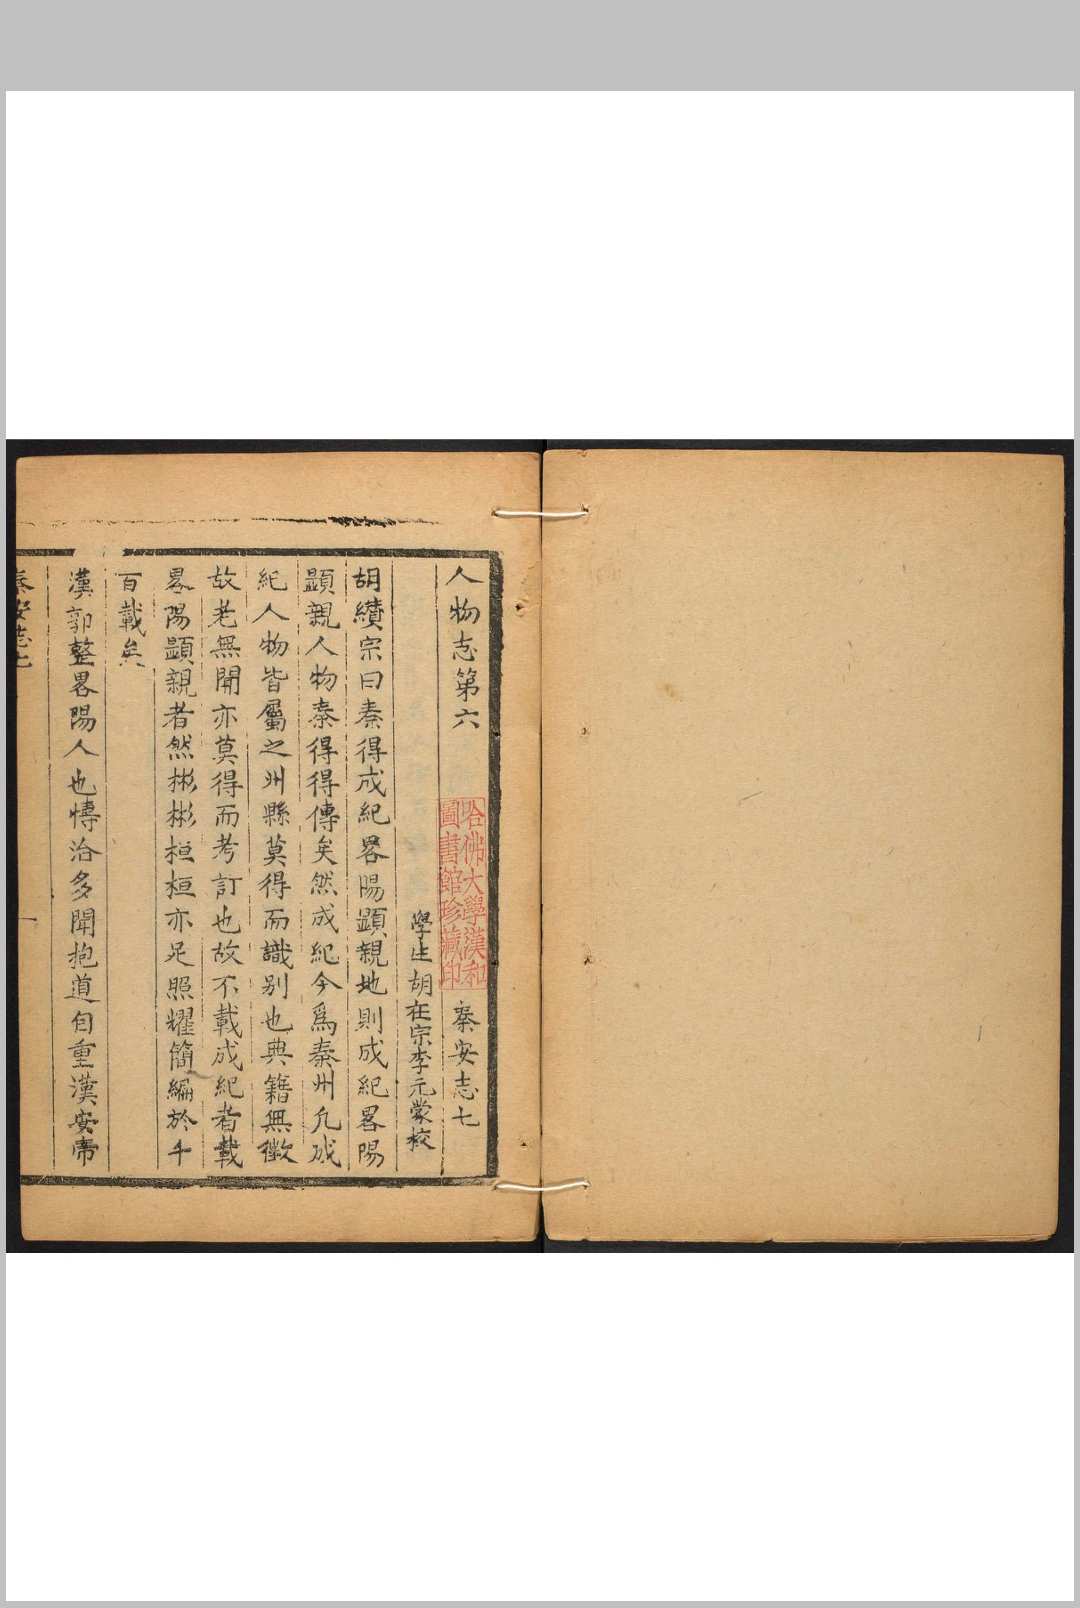 人物志第六 秦安志七
學生胡在宗李元蒙校
胡纘宗曰秦得成紀畧陽顯親地則成紀畧陽
顯親人物秦得得傳矣然成紀今爲秦州凡成
紀人物皆屬之州縣莫得而識别也典籍無徵
故老無聞亦莫得而考訂也故不載成紀者載
畧陽顯親者然彬彬桓桓亦足照耀簡編於千
百載矣
漢郭整畧陽人也慱洽多聞抱道自重漢安帝
秦安志七
一
哈佛大學漢和
圖書館珍藏印